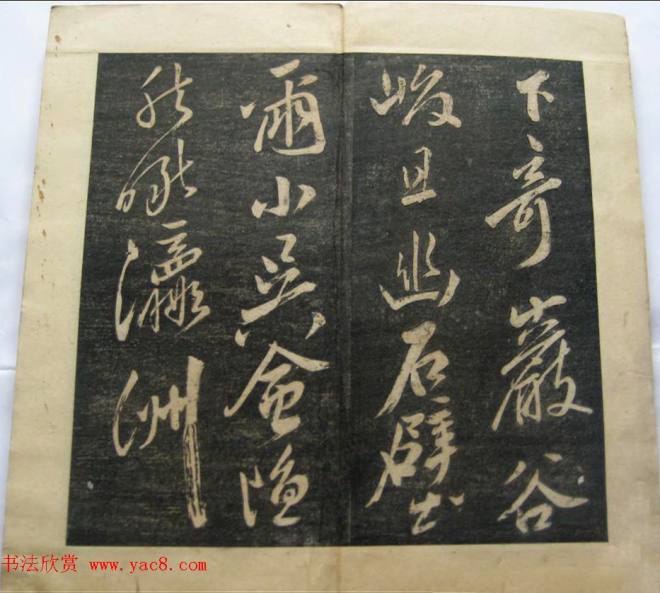 下奇巖谷
峻且幽石壁
爾小吳會隱
然瞰瀛洲
书法欣赏 www.yac8.com